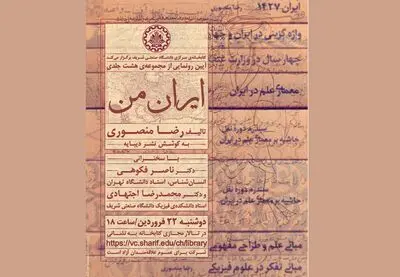 کتابخانه‌ی مرکزی دانشگاه صنعتی شریف برگزار می‌کند
آیین رونمایی از مجموعه‌ی هشت جلدی
ایران من
تالیف رضا منصوری
به کوشش نشر دیبایه
با سخنرانی
دکتر ناصر فکوهی
انسان‌شناس، استاد دانشگاه تهران
و دکتر محمدرضا اجتهادی
استاد دانشکده‌ی فیزیک دانشگاه صنعتی شریف
دوشنبه ۲۲ فروردین/ساعت ۱۸
در تالار مجازی کتابخانه به نشانی
https://vc.sharif.edu/ch/library
شرکت برای عموم علاقه‌مندان آزاد است
ایران ۱۴۲۷
رضا منصوری
واژه گزینی در ایران و جهان
چهار سال در وزارت عتف
معماری علم در ایران
حاشیه بر معماری علم در ایران
حاشیه بر معماری علم در ایران
مبانی علم و طراحی مفهومی
مبانی تفکر در علوم فیزیکی
رضا منصوری